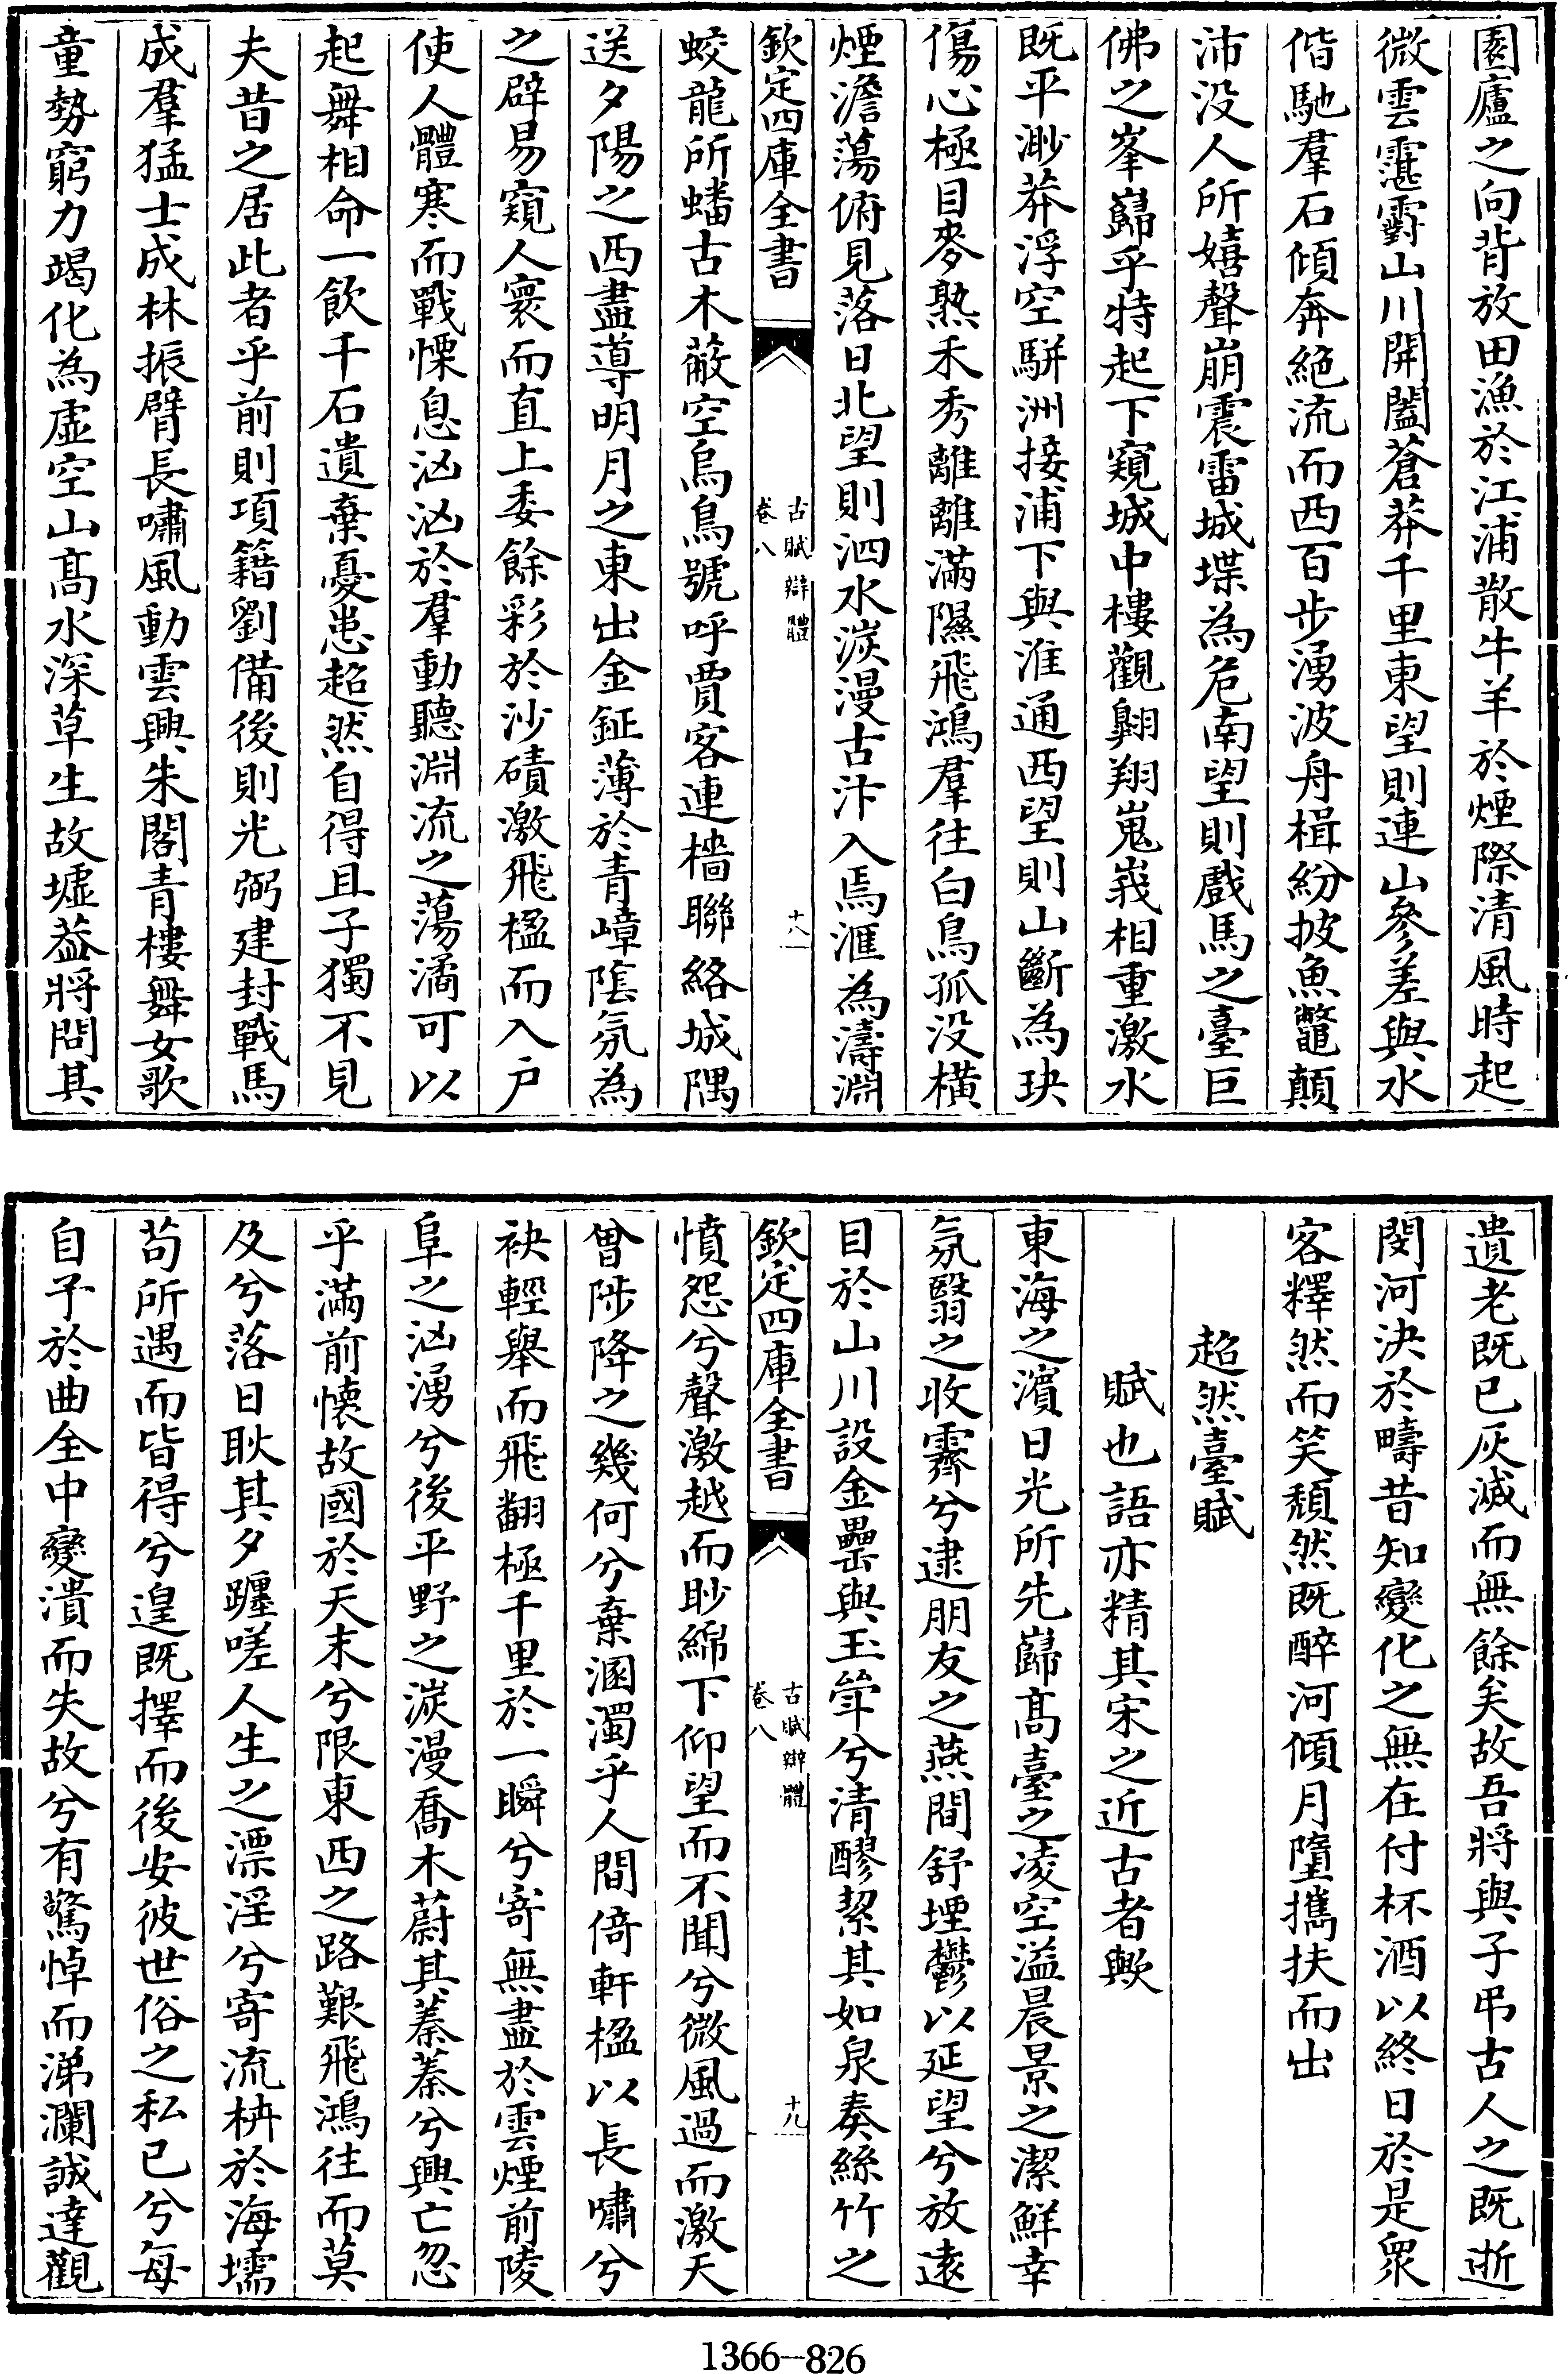 園廬之向背放田漁於江浦散牛羊於煙際清風時起
微雲霮䨴山川開闔蒼莽千里東望則連山參差與水
偕馳羣石傾奔絶流而西百步湧波舟楫紛披魚鼈顛
沛没人所嬉聲崩震雷城堞為危南望則戲馬之臺巨
佛之峯巋乎特起下窺城中樓觀翺翔嵬峩相重激水
既平渺莽浮空駢洲接浦下與淮通西望則山斷為玦
傷心極目麥熟禾秀離離滿隰飛鴻羣往白鳥孤没橫
煙澹蕩俯見落日北望則泗水湠漫古汴入焉滙為濤淵
欽定四庫全書
古賦辯體
卷八
十八
蛟龍所蟠古木蔽空烏鳥號呼賈客連檣聯絡城隅
送夕陽之西盡導明月之東出金鉦薄於青嶂陰氛為
之辟易窺人寰而直上委餘彩於沙磧激飛楹而入户
使人體寒而戰慄息汹汹於羣動聽淵流之蕩潏可以
起舞相命一飲千石遺棄憂患超然自得且子獨不見
夫昔之居此者乎前則項籍劉備後則光弼建封戰馬
成羣猛士成林振臂長嘯風動雲興朱閣青樓舞女歌
童勢窮力竭化為虛空山髙水深草生故墟葢將問其
遺老既已灰滅而無餘矣故吾將與子弔古人之既逝
閔河決於疇昔知變化之無在付杯酒以終日於是衆
客釋然而笑頽然既醉河傾月墮攜扶而出
超然臺賦
賦也語亦精其宋之近古者歟
東海之濵日光所先巋髙臺之凌空溢晨景之潔鮮幸
氛翳之收霽兮逮朋友之燕間舒堙鬱以延望兮放遠
目於山川設金罍與玉斝兮清醪絜其如泉奏絲竹之
欽定四庫全書
古賦辯體
卷八
十九
憤怨兮聲激越而眇綿下仰望而不聞兮微風過而激天
曾陟降之幾何兮棄溷濁乎人間倚軒楹以長嘯兮
袂輕舉而飛翻極千里於一瞬兮寄無盡於雲煙前陵
阜之汹湧兮後平野之湠漫喬木蔚其蓁蓁兮興亡忽
乎滿前懐故國於天末兮限東西之路艱飛鴻往而莫
及兮落日耿其夕躔嗟人生之漂淫兮寄流枿於海壖
茍所遇而皆得兮遑既擇而後安彼世俗之私已兮每
自予於曲全中變潰而失故兮有驚悼而涕瀾誠達觀
1366—826